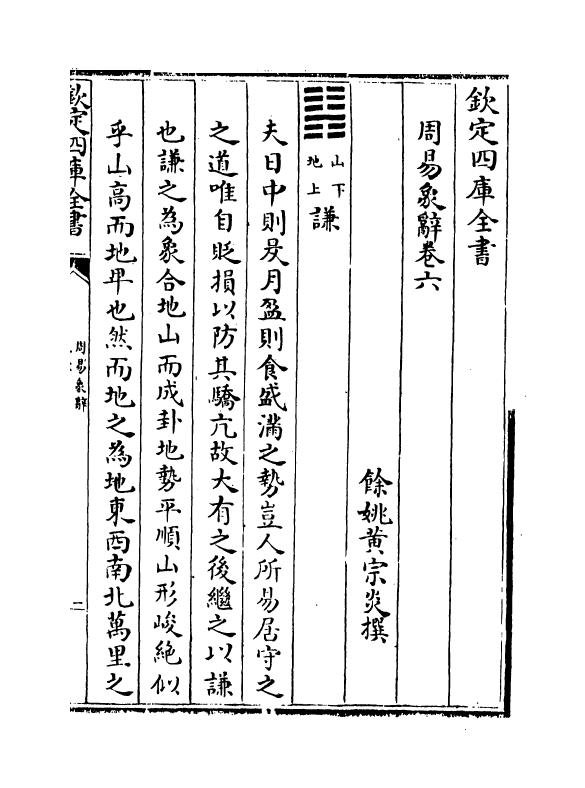 欽定四庫全書
周易象辭卷六
餘姚黃宗炎撰
山下
地上
謙
夫日中則昃月盈則食盛滿之勢豈人所易居守之
之道唯自貶損以防其驕亢故大有之後繼之以謙
也謙之為象合地山而成卦地勢平順山形峻絶似
乎山高而地卑也然而地之為地東西南北萬里之
欽定四庫全書
周易象辭